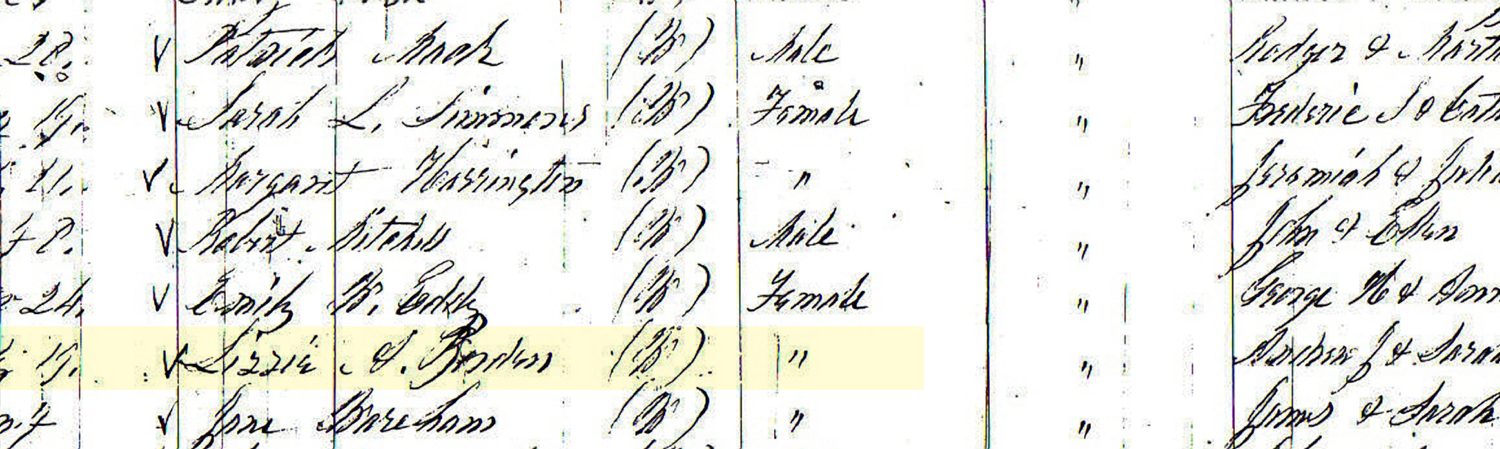 28. V Patrick Mack (W) Male " Rodger &
19. V Sarah L. Simmons (W) Female " Frederic S &
21. V Margaret Harrington (W) " " Jeremiah & Julia
8. V Robert Mitchell (W) Male " John & Ellen
24. V Emily W. Eddy (W) Female " George H &
19. V Lizzie A. Borden (W) " " Andrew J & Sarah
V Jane (W) " " James & Sarah